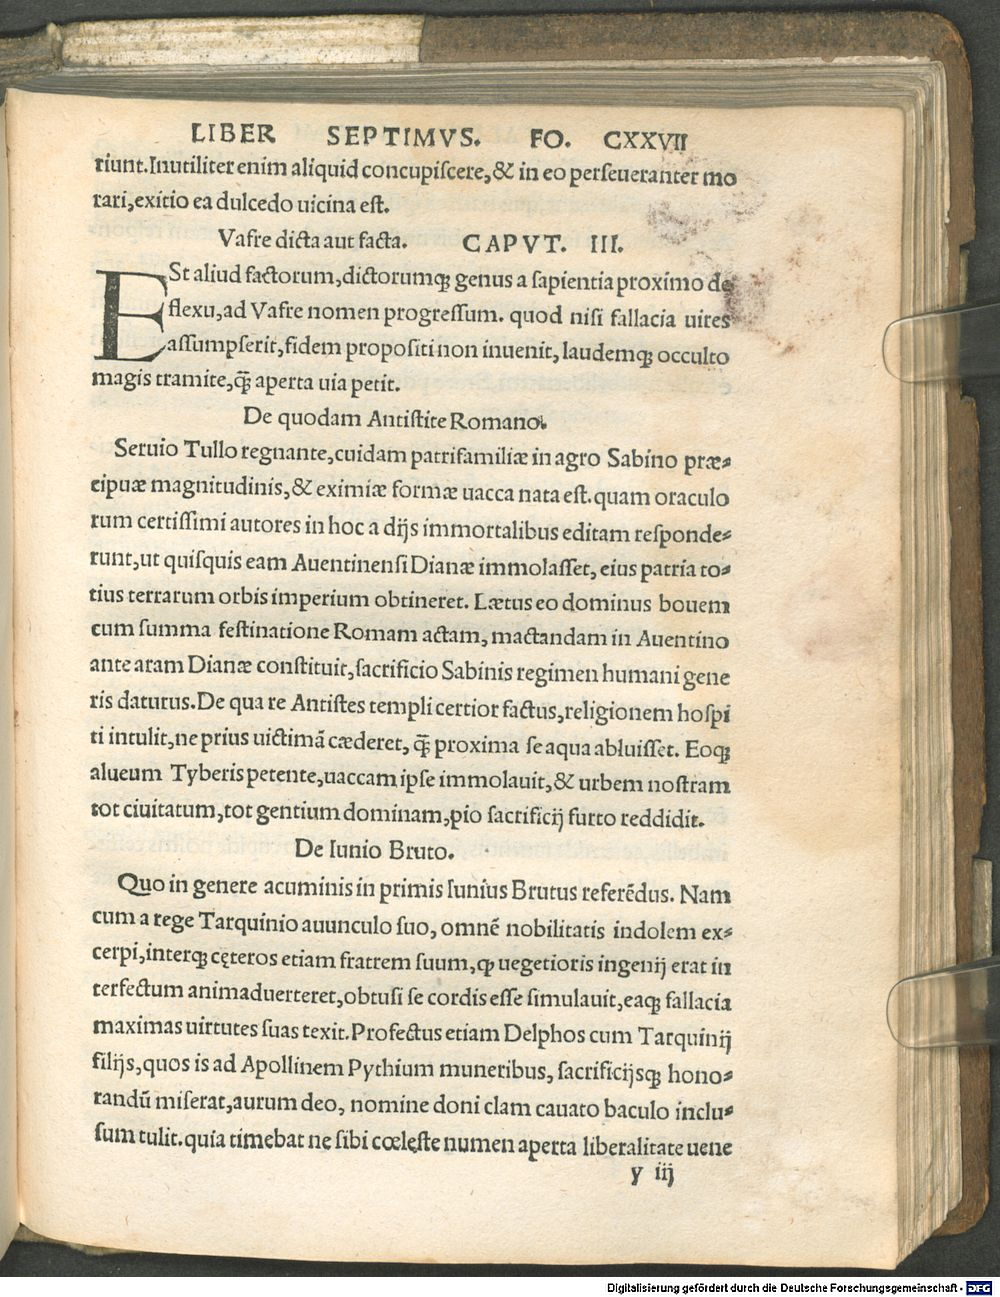 LIBER SEPTIMVS. FO. CXXVII
riunt. Inutiliter enim aliquid concupiſcere, & in eo perſeueranter mo
rari, exitio ea dulcedo uicina eſt.
Vafre dicta aut facta. CAPVT. III.
ESt aliud factorum, dictorumq́; genus a ſapientia proximo de
flexu, ad Vafre nomen progreſſum. quod niſi fallacia uires
aſſumpſerit, fidem propoſiti non inuenit, laudemq́; occulto
magis tramite, q̃ aperta uia petit.
De quodam Antiſtite Romano.
Seruio Tullo regnante, cuidam patrifamiliæ in agro Sabino præ⸗
cipuæ magnitudinis, & eximiæ formæ uacca nata eſt. quam oraculo
rum certiſſimi autores in hoc a dijs immortalibus editam reſponde⸗
runt, ut quiſquis eam Auentinenſi Dianæ immolaſſet, eius patria to⸗
tius terrarum orbis imperium obtineret. Lætus eo dominus bouem
cum ſumma feſtinatione Romam actam, mactandam in Auentino
ante aram Dianæ conſtituit, ſacrificio Sabinis regimen humani gene
ris daturus. De qua re Antiſtes templi certior factus, religionem hoſpi
ti intulit, ne prius uictimã cæderet, q̃ proxima ſe aqua abluiſſet. Eoq́;
alueum Tyberis petente, uaccam ipſe immolauit, & urbem noſtram
tot ciuitatum, tot gentium dominam, pio ſacrificij furto reddidit.
De Iunio Bruto.
Quo in genere acuminis in primis Iunius Brutus referẽdus. Nam
cum a rege Tarquinio auunculo ſuo, omnẽ nobilitatis indolem ex⸗
cerpi, interq́; cęteros etiam fratrem ſuum, ꝙ uegetioris ingenij erat in
terfectum animaduerteret, obtuſi ſe cordis eſſe ſimulauit, eaq́; fallacia
maximas uirtutes ſuas texit. Profectus etiam Delphos cum Tarquinij
filijs, quos is ad Apollinem Pythium muneribus, ſacrificijsq́; hono⸗
randũ miſerat, aurum deo, nomine doni clam cauato baculo inclu⸗
ſum tulit. quia timebat ne ſibi cœleſte numen aperta liberalitate uene
y iij
Digitalisierung gefördert durch die Deutsche Forschungsgemeinschaft - DFG